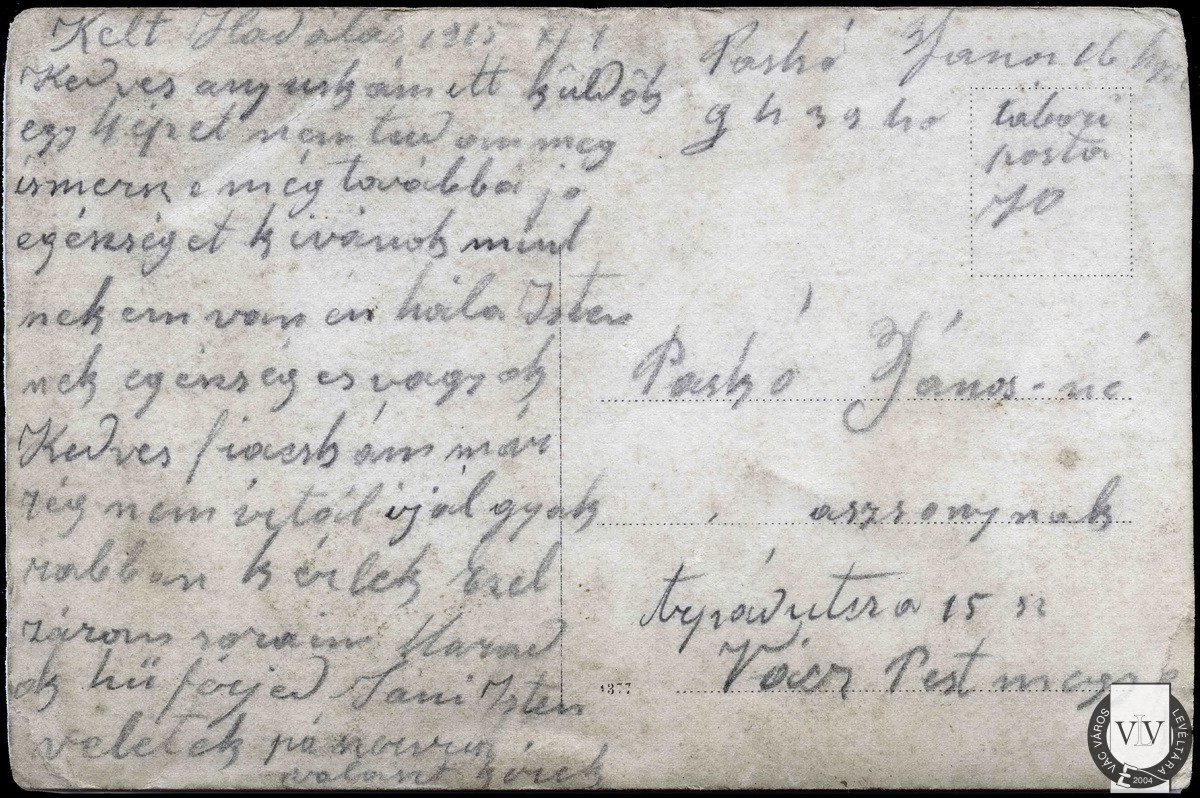 Kelt Hadálás 1915
Kedves anyuskám itt küldök
egy képet nem tudom meg
ismerik e még továbbá jo
egésséget kivánok mint
nekem van én hála Isten
nek egésséges vagyok
Kedves fiacskám már
rég nem irtál irjál gyak
rabban kérlek Ezel
zárom soraim Marad
ok hü férjed Jani Isten
veletek pá
valaszt kérek
Paskó János 16
g h 3 9 ho
tábori
posta
70
Paskó János-né
aszsonynak
Árpád utsza 15 sz
Vácz Pest megye
1377
VÁC VÁROS LEVÉLTÁRA
VLV
2004